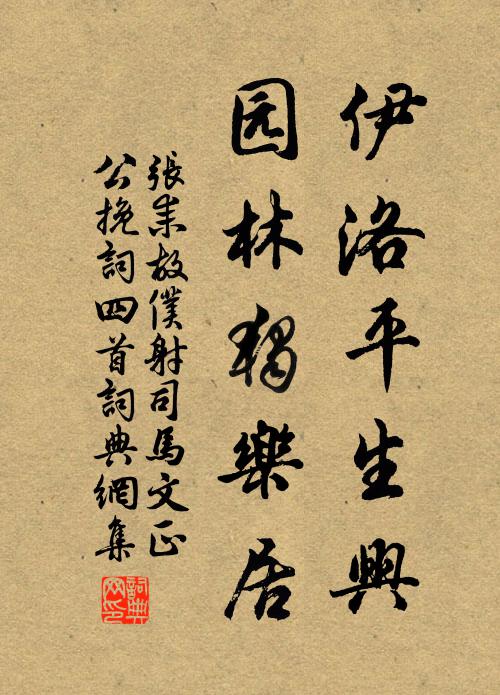 伊洛平生興
园林獨樂居
張耒故僕射司馬文正
公挽詞四首詞典網集